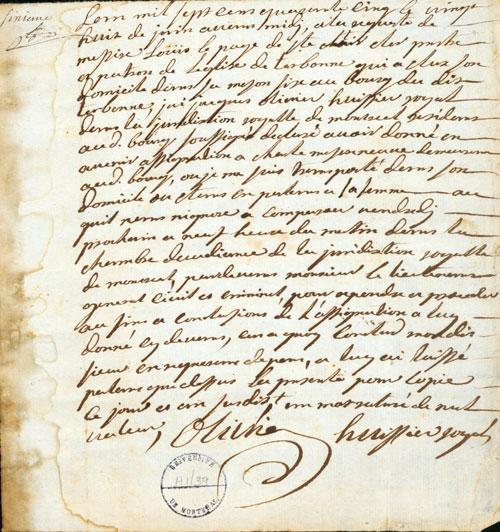 Lan mil sept cens quarante cinq le vingt
huit de juin avant midi, a la requeste de
messire Louis le page de Ste claire ptre
et patron de leglise de terbonne qui a elus son
domicile dans sa meson sise au bourg du dit
terbonne, jai jacques olivier huissier royal
dans la juridiction royalle de montreal residant
aud. bourg soussigné declare avoir donné en
avenir assignation a charle demeurant
aud. bourg, ou je me suis transporté dans son
domicile en parlans a sa femme au
quil nen nignore a comparoir vendredi
prochain a neuf heure du matin dans la
chambre daudiance de la juridiction royalle
de montreal, pardevans monsieur le lieutenant
general civil et criminel, pour repondre et proceder
au fins et conclusions de l'assignation a luy
donné cy devans, en a quoy
en de pens, a luy ai laissé
parlans que dessus les presente pour copie
Ce jour et an susdit un mot raturé de nul
valeur, Olivie huissier royal
UNIVERSITE
DE MONTREAL